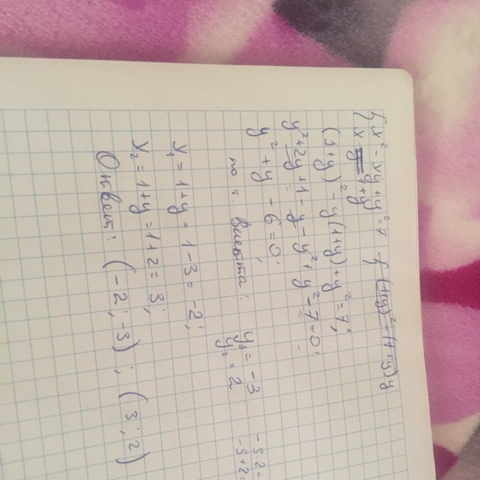 {x² - xy + y² = 7
{x = 1+y
(1+y)² - y(1+y) + y² = 7;
y² + 2y + 1 - y - y² + y² - 7 = 0;
y² + y - 6 = 0;
по т. Виета: y₁ = -3
y₂ = 2
x₁ = 1+y = 1-3 = -2;
x₂ = 1+y = 1+2 = 3;
Ответ: (-2; -3); (3; 2)